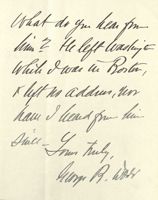 What do you hear from
him? He left Washington
while I was in Boston,
& left no address, nor
have I heard from him
since —
Yours truly,
George B.